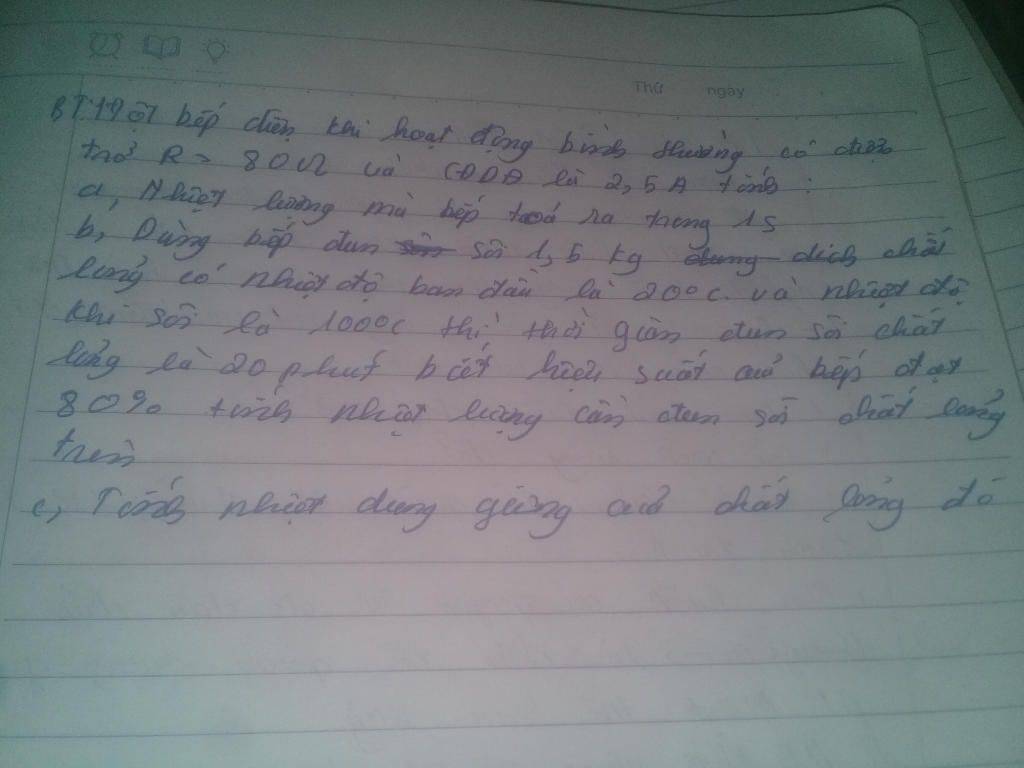 Thứ ngày
BT.1 Một bếp điện khi hoạt động bình thường có điện
trở R = 80Ω và CĐDĐ là 2,5A tính :
a, Nhiệt lượng mà bếp toả ra trong 1s
b, Dùng bếp đun sôi 1,5 kg dung dịch chất
lỏng có nhiệt độ ban đầu là 20°C. và nhiệt độ
khi sôi là 100°C thì thời gian đun sôi chất
lỏng là 20 phút biết hiệu suất của bếp đạt
80% tính nhiệt lượng cần đun sôi chất lỏng
trên
c, Tính nhiệt dung giêng của chất lỏng đó